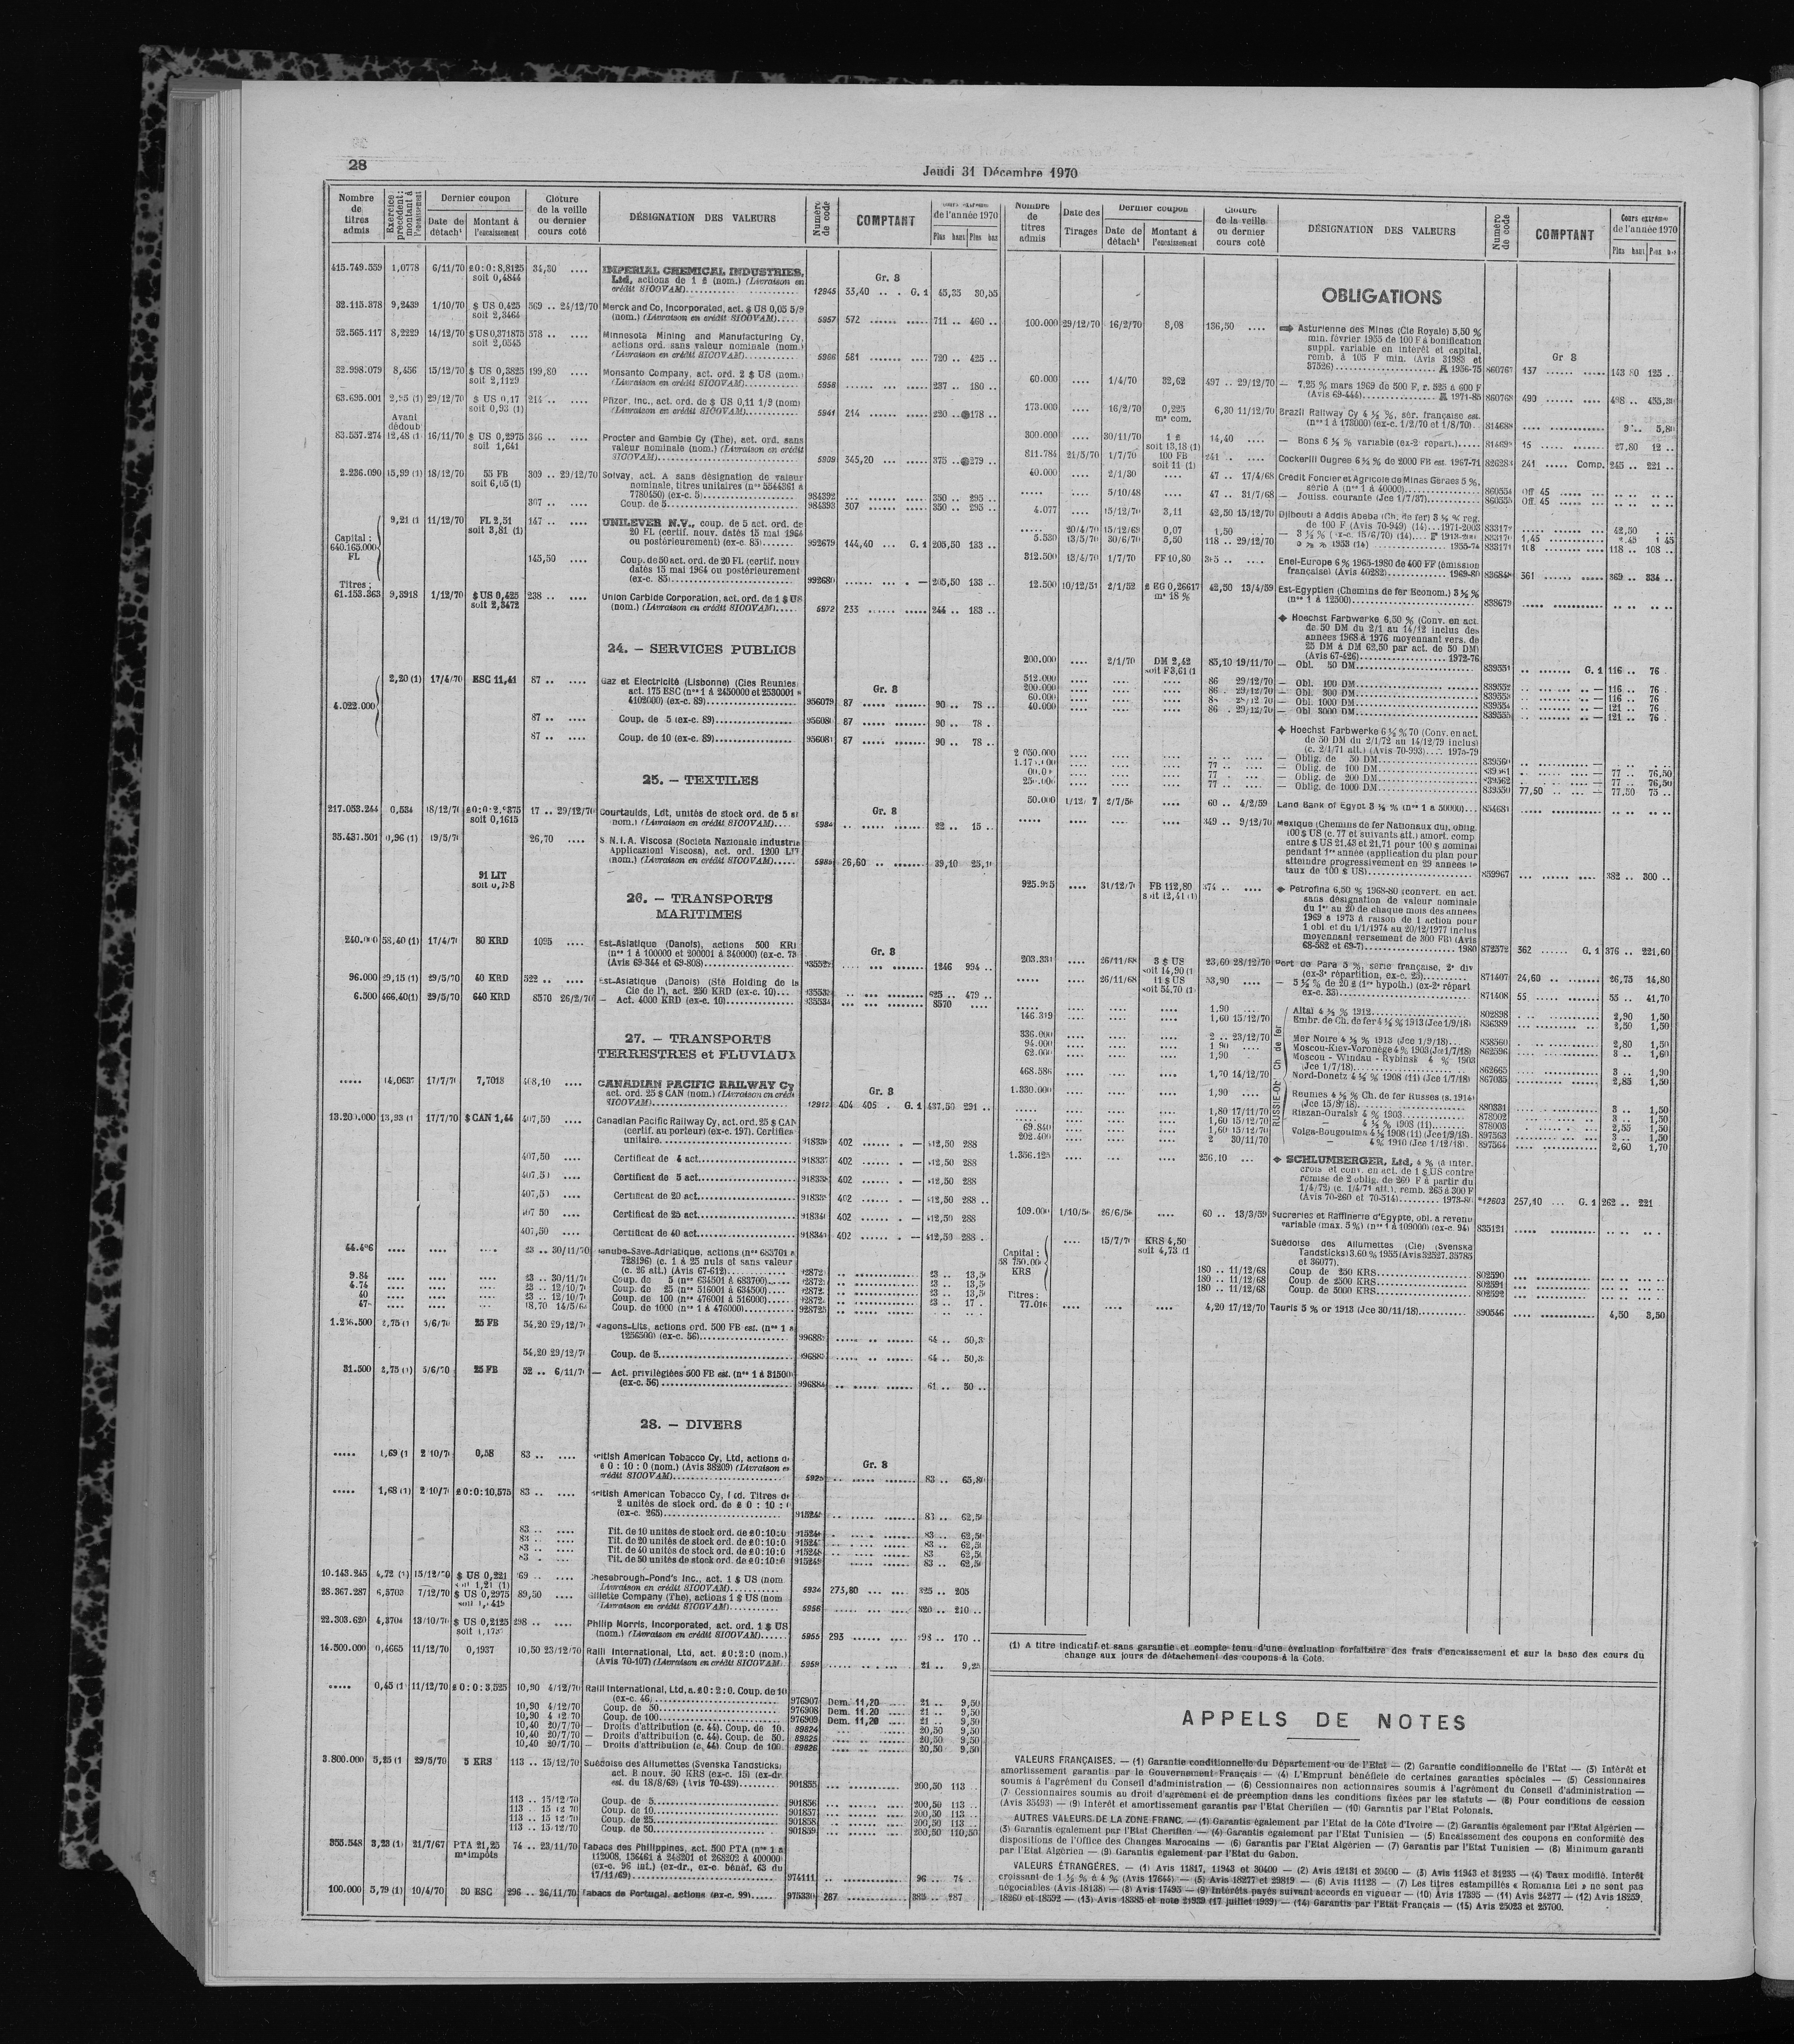 28
Jeudi 31 Décembre 1970
Nombre de titres admis
Exercice précédent: montant à l'encaissement
Dernier coupon
Date de détach^t
Montant à l'encaissement
Clôture de la veille ou dernier cours coté
DÉSIGNATION DES VALEURS
Numéro de code
COMPTANT
de l'année 1970
Plus haut Plus bas
415.749.559 1,0778 6/11/70 £0:0:8,8125 34,30 .... IMPERIAL CHEMICAL INDUSTRIES,
soit 0,4844 Ltd, actions de 1 £ (nom.) (Livraison en
crédit SICOVAM) 12945 33,40 .. . G. 1 45,35 30,55
Gr. 8
32.115.378 9,2439 1/10/70 $ US 0,425 569 .. 24/12/70 Merck and Co, Incorporated, act. $ US 0,05 5/9
soit 2,3464 (nom.) (Livraison en crédit SICOVAM) 5957 572 711 .. 460 ..
52.565.117 8,2229 14/12/70 $ US 0,371875 578 .. .... Minnesota Mining and Manufacturing Cy,
soit 2,0545 actions ord. sans valeur nominale (nom.)
(Livraison en crédit SICOVAM) 5966 581 720 .. 425 ..
32.998.079 8,456 15/12/70 $ US 0,3825 199,80 .... Monsanto Company, act. ord. 2 $ US (nom.)
soit 2,1129 (Livraison en crédit SICOVAM) 5958 237 .. 180 ..
63.695.001 2,95 (1) 29/12/70 $ US 0,17 214 .. .... Pfizer, Inc., act. ord. de $ US 0,11 1/9 (nom)
soit 0,93 (1) (Livraison en crédit SICOVAM) 5941 214 220 .. 178 ..
Avant dédoub
83.557.274 12,48 (1 16/11/70 $ US 0,2975 346 .. .... Procter and Gamble Cy (The), act. ord. sans
soit 1,641 valeur nominale (nom.) (Livraison en crédit
SICOVAM) 5909 345,20 375 .. 279 ..
2.236.090 15,99 (1) 18/12/70 55 FB 309 .. 29/12/70 Solvay, act. A sans désignation de valeur
soit 6,05 (1) nominale, titres unitaires (n^os 5544361 à
7780450) (ex-c. 5) 984392 350 .. 295 ..
307 .. .... Coup. de 5 984393 307 350 .. 293 ..
9,21 (1 11/12/70 FL 2,51 147 .. .... UNILEVER N.V., coup. de 5 act. ord. de
soit 3,81 (1) 20 FL (certif. nouv. datés 15 mai 1964
ou postérieurement) (ex-c. 85) 992679 144,40 ... G. 1 205,50 133 ..
Capital : 640.165.000 FL
145,50 .... Coup. de 50 act. ord. de 20 FL (certif. nouv
datés 15 mai 1964 ou postérieurement
(ex-c. 85) 992680 — 205,50 133 ..
Titres :
61.153.363 9,3918 1/12/70 $ US 0,425 238 .. .... Union Carbide Corporation, act. ord. de 1 $ US
soit 2,3472 (nom.) (Livraison en crédit SICOVAM) 5972 233 244 .. 183 ..
24. — SERVICES PUBLICS
2,20 (1) 17/4/70 ESC 11,41 87 .. .... Gaz et Electricité (Lisbonne) (Cies Réunies
act. 175 ESC (n^os 1 à 2450000 et 2530001 à
Gr. 8
4.022.000 4102000) (ex-c. 89) 956079 87 90 .. 78 ..
87 .. .... Coup. de 5 (ex-c. 89) 87 90 .. 78 ..
87 .. .... Coup. de 10 (ex-c. 89) 95608 87 90 .. 78 ..
25. — TEXTILES
217.053.244 0,534 Courtaulds, Ldt, unités de stock ord. de 5
soit 0,1615 (Livraison en crédit SICOVAM) 22 .. 15 ..
17 .. 29/12/70
Gr. 8
35.437.501 0,96 (1) 19/5/70 26,70 .... S.N.I.A. Viscosa (Societa Nazionale Industrie
Applicazioni Viscosa), act. ord. 1200
(nom.) (Livraison en crédit SICOVAM) 26,60 39,10
91 LIT
26. — TRANSPORTS
MARITIMES
58,40 (1) 17/4/70 80 KRD 1095 .... Est-Asiatique (Danois), actions 500 KRD
(n^os 1 à 100000 et 200001 à 340000) (ex-c. 73
(Avis 69-344 et 69-808) 1246 994 ..
Gr. 8
96.000 29,15 (1) 29/5/70 40 KRD 522 .. .... Est-Asiatique (Danois) (Sté Holding de la
Cie de l'), act. 250 KRD (ex-c. 10) 625 .. 479 ..
6.500 466,40(1) 29/5/70 640 KRD 8570 26/2/70 — Act. 4000 KRD (ex-c. 10) 8570 ....
27. — TRANSPORTS
TERRESTRES et FLUVIAUX
14,0637 17/7/70 7,7018 408,10 .... CANADIAN PACIFIC RAILWAY Cy
act. ord. 25 $ CAN (nom.) (Livraison en crédit
SICOVAM) 12912 404 405 . G. 1 437,50 291 ..
Gr. 8
13.200.000 13,93 (1 17/7/70 $ CAN 1,44 407,50 .... Canadian Pacific Railway Cy, act. ord. 25 $ CAN
(certif. au porteur) (ex-c. 197). Certificat
unitaire 402 — 412,50 288
407,50 .... Certificat de 4 act. 918337 402 — 412,50 288
407,50 .... Certificat de 5 act. 402 — 412,50 288
407,50 .... Certificat de 20 act. 402 — 412,50 288 ..
407 50 .... Certificat de 25 act. 402 — 412,50 288
407,50 .... Certificat de 40 act. 402 — 412,50 288 .
23 .. 30/11/70 Danube-Save-Adriatique, actions (n^os 683701 à
728196) (c. 1 à 25 nuls et sans valeur
(c. 26 att.) (Avis 67-612) 23 ..
23 .. 30/11/70 Coup. de 5 (n^os 634501 à 683700) 23 ..
23 .. 12/10/70 Coup. de 25 (n^os 516001 à 634500) 23 ..
23 .. 12/10/70 Coup. de 100 (n^os 476001 à 516000) 23 ..
Coup. de 1000 (n^os 1 à 476000) 928725 23 .. 17 .
1.256.500 2,75 (1 5/6/70 25 FB 54,20 29/12/70 Wagons-Lits, actions ord. 500 FB est. (n^os 1 à
1256500) (ex-c. 56) 64 ..
54,20 29/12/70 Coup. de 5 64 ..
31.500 2,75 (1) 5/6/70 25 FB 52 .. 6/11/70 — Act. privilégiées 500 FB est. (n^os 1 à 31500
(ex-c. 56) 996884 61 .. 50 ..
28. — DIVERS
1,69 (1 2/10/70 0,58 83 .. .... British American Tobacco Cy, Ltd, actions de
£ 0 : 10 : 0 (nom.) (Avis 38209) (Livraison en
crédit SICOVAM) 83 ..
Gr. 8
1,68 (1) 2/10/70 £0:0:10,575 83 .. .... British American Tobacco Cy, Ltd. Titres de
2 unités de stock ord. de £ 0 : 10 : 0
(ex-c. 265) 83 .. 62,50
83 .. .... Tit. de 10 unités de stock ord. de £0:10:0 83 .. 62,50
83 .. .... Tit. de 20 unités de stock ord. de £0:10:0 83 .. 62,50
83 .. .... Tit. de 40 unités de stock ord. de £0:10:0 915248 83 62,50
83 . .... Tit. de 50 unités de stock ord. de £0:10:0 915249 83 .. 62,50
10.143.245 4,72 (1) 15/12/70 $ US 0,221 Chesebrough-Pond's Inc., act. 1 $ US (nom
soit 1,21 (1) Livraison en crédit SICOVAM) 5934 275,80 325 .. 205
28.367.287 6,5703 7/12/70 $ US 0,2975 89,50 .... Gillette Company (The), actions 1 $ US (nom
(Livraison en crédit SICOVAM) 5956 320 .. 210 ..
22.303.620 4,3704 13/10/70 $ US 0,2125 298 .. .... Philip Morris, Incorporated, act. ord. 1 $ US
(nom.) (Livraison en crédit SICOVAM) 5955 293 298 .. 170 ..
14.500.000 0,4665 11/12/70 0,1937 10,50 23/12/70 Ralli International, Ltd, act. £0:2:0 (nom.)
(Avis 70-107) (Livraison en crédit SICOVAM) 5959 21 .. 9,25
0,45 (1) 11/12/70 £0:0:3,525 10,90 4/12/70 Ralli International, Ltd, a. £0:2:0. Coup. de 10
(ex-c. 46) 976907 Dem. 11,20 21 .. 9,50
10,90 4/12/70 Coup. de 50 976908 Dem. 11.20 21 .. 9,50
10,90 4 12 70 Coup. de 100 976909 Dem. 11,20 21 .. 9,50
10,40 20/7/70 — Droits d'attribution (c. 44). Coup. de 10. 89824 20,50 9,50
10,40 20/7/70 — Droits d'attribution (c. 44). Coup. de 50. 89825 20,50 9,50
10,40 20/7/70 — Droits d'attribution (c. 44). Coup. de 100 89826 20,50 9,50
3.800.000 5,25 (1 29/5/70 5 KRS 113 .. 15/12/70 Suédoise des Allumettes (Svenska Tandsticks)
act. B nouv. 50 KRS (ex-c. 15) (ex-dr.
est. du 18/8/69) (Avis 70-439) 901855 200,50 113 ..
113 .. 15/12/70 Coup. de 5 901856 200,50 113 ..
113 .. 15 12 70 Coup. de 10 901857 200,50 113 ..
113 .. 15 12/70 Coup. de 25 901858 200,50 113 ..
113 .. 15/12/70 Coup. de 50 901859 200,50 110,50
355.548 3,23 (1) 21/7/67 PTA 21,25 74 .. 23/11/70 Tabacs des Philippines, act. 500 PTA (n^os 1 à
m^s impôts 112008, 136461 à 248201 et 268202 à 400000)
(ex-c. 96 int.) (ex-dr., ex-c. bénéf. 63 du
17/11/69) 974111 96 .. 74 .
100.000 5,79 (1) 10/4/70 30 ESC 296 .. 26/11/70 Tabacs de Portugal, actions (ex-c. 99) 975330 287 383 .. 287
Nombre de titres admis
Date des Tirages
Dernier coupon
Date de détach^t
Montant à l'encaissement
Clôture de la veille ou dernier cours coté
DÉSIGNATION DES VALEURS
Numéro de code
COMPTANT
Cours extrême de l'année 1970
Plus haut Plus bas
OBLIGATIONS
100.000 29/12/70 16/2/70 8,08 136,50 .... Asturienne des Mines (Cie Royale) 5,50 %
min. février 1955 de 100 F à bonification
suppl. variable en intérêt et capital,
remb. à 105 F min. (Avis 31983 et
37526) 1956-75 137 143 80 125 ..
Gr 8
60.000 .... 1/4/70 32,62 497 .. 29/12/70 — 7,25 % mars 1969 de 500 F, r. 525 à 600 F
(Avis 69-444) 1971-85 490 498 ..
173.000 .... 16/2/70 0,225 6,30 11/12/70 Brazil Railway Cy 4 ½ %, sér. française est.
m^s com. (n^os 1 à 173000) (ex-c. 1/2/70 et 1/8/70)
300.000 .... 30/11/70 1 £ 14,40 .... — Bons 6 ½ % variable (ex-2^e répart.) 15 27,80 12 ..
soit 13,18 (1)
811.784 21/5/70 1/7/70 100 FB 241 . .... Cockerill Ougrée 6 ¼ % de 2000 FB est. 1967-71 241 Comp. 245 .. 221 ..
soit 11 (1)
40.000 .... 2/1/30 .... 47 .. 17/4/68 Crédit Foncier et Agricole de Minas Géraes 5 %,
série A (n^os 1 à 40000) 860554 Off. 45
..... .... 5/10/48 .... 47 .. 31/7/68 — Jouiss. courante (Jce 1/7/37) 860555 Off. 45
4.077 15/12/70 3,11 42,50 15/12/70 Djibouti à Addis Abeba (Ch. de fer) 3 ½ % reg.
de 100 F (Avis 70-949) (14) 1971-2003 42,50
20/4/70 15/12/69 0,07 1,50 — 3 ½ % (ex-c. 15/6/70) (14) 1,45
5.530 13/5/70 30/6/70 5,50 118 .. 29/12/70 1953 (14) 833171 118 .. 108 ..
312.500 13/4/70 1/7/70 FF 10,80 Enel-Europe 6 % 1965-1980 de 400 FF (émission
française) (Avis 40282) 1969-80 361 369 .. 334 ..
12.500 10/12/51 2/1/52 £ EG 0,26617 42,50 13/4/59 Est-Egyptien (Chemins de fer Econom.) 3 ½ %
m^s 18 % (n^os 1 à 12500) 838679
Hoechst Farbwerke 6,50 % (Conv. en act.
de 50 DM du 2/1 au 14/12 inclus des
années 1968 à 1976 moyennant vers. de
25 DM à DM 62,50 par act. de 50 DM)
(Avis 67-426) 1972-76
200.000 .... 2/1/70 DM 2,42 85,10 19/11/70 — Obl. 50 DM G. 1 116 .. 76
soit F 3,61 (1
512.000 86 29/12/70 — Obl. 100 DM 839552 — 116 .. 76
200.000 86 . 29/12/70 — Obl. 300 DM 839553 — 116 .. 76
60.000 — Obl. 1000 DM 839554 — 121 .. 76
40.000 86 . 29/12/70 — Obl. 3000 DM 839555 — 121 .. 76
Hoechst Farbwerke 6 ½ % 70 (Conv. en act.
de 50 DM du 2/1/72 au 14/12/79 inclus)
(c. 2/1/71 att.) (Avis 70-993) 1975-79
2 050.000 — Oblig. de 50 DM
— Oblig. de 100 DM 77 .. 76,50
— Oblig. de 200 DM 77 .. 76,50
— Oblig. de 1000 DM 839550 77,50 — 77.50 75 ..
50.000 60 .. 4/2/59 Land Bank of Egypt 3 ½ % (n^os 1 à 50000)
349 .. 9/12/70 Mexique (Chemins de fer Nationaux du), oblig.
100 $ US (c. 77 et suivants att.) amort. comp
entre $ US 21,43 et 21,71 pour 100 $ nominal
pendant 1^re année (application du plan pour
atteindre progressivement en 29 années le
taux de 100 $ US) 859967 382 .. 300 ..
31/12/70 FB 112,80 374 .. .... Petrofina 6,50 % 1968-80 (convert. en act.
soit 12,41 (1) sans désignation de valeur nominale
du 1^er au 20 de chaque mois des années
1969 à 1973 à raison de 1 action pour
1 obl. et du 1/1/1974 au 20/12/1977 inclus
moyennant versement de 300 FB) (Avis
68-582 et 69-7) 1980 872572 362 G. 1 376 .. 221,60
203.331 .... 26/11/68 3 $ US 23,60 28/12/70 Port de Para 5 %, série française, 2^e div
soit 14,90 (1 (ex-3^e répartition, ex-c. 25) 871407 24,60 26,75 14,80
..... 26/11/68 11 $ US 53,90 .... — 5 ½ % de 20 £ (1^re hypoth.) (ex-2^e répart
soit 54,70 (1) ex-c. 33) 871408 55 55 .. 41,70
RUSSIE-Obl. Ch de fer
1.90 .... Altaï 4 ½ % 1912 802898 2,90 1,50
146.319 1,60 15/12/70 Embr. de Ch. de fer 4 ½ % 1913 (Jce 1/9/18) 836389 2,50 1,50
336.000 2 .. 23/12/70 Mer Noire 4 ½ % 1913 (Jce 1/9/18) 858560 2,80 1,50
94.000 1 90 .... Moscou-Kiev-Voronège 4 % 1903 (Jce 1/7/18) 862596 3 .. 1,60
62.000 1,90 Moscou - Windau - Rybinsk 4 % 1903
(Jce 1/7/18) 862665 3 .. 1,90
468.586 1,70 14/12/70 Nord-Donetz 4 ½ % 1908 (11) (Jce 1/7/18) 867035 2,85 1,50
1.330.000 1,90 .... Réunies 4 ½ % Ch. de fer Russes (s. 1914)
(Jce 15/8/18) 880331 3 .. 1,50
1,80 17/11/70 Riazan-Ouralsk 4 % 1903 878002 3 .. 1,50
1,60 15/12/70 — 4 ½ % 1908 (11) 878003 2,55 1,50
69.840 1,60 15/12/70 Volga-Bougoulma 4 ½ 1908 (11) (Jce 1/9/18) 897563 3 .. 1,50
202.400 2 30/11/70 — 4 % 1910 (Jce 1/12/18) 897564 2,60 1,70
1.356.125 256.10 ... SCHLUMBERGER, Ltd, 4 % (à inter.
crois et conv. en act. de 1 $ US contre
remise de 2 oblig. de 260 F à partir du
1/4/72) (c. 1/4/71 att.), remb. 265 à 300 F
(Avis 70-260 et 70-514) 12603 257,40 G. 1 262 .. 221
109.000 60 .. 13/3/59 Sucreries et Raffinerie d'Egypte, obl. à revenu
variable (max. 5 %) (n^os 1 à 109000) (ex-c. 94) 835121
15/7/70 KRS 4,50 Suédoise des Allumettes (Cie) (Svenska
soit 4,73 (1 Tandsticks) 3.60 % 1955 (Avis 32527, 35785
et 36077).
Capital : KRS
180 .. 11/12/68 Coup. de 250 KRS 802590
180 .. 11/12/68 Coup. de 2500 KRS 802591
180 .. 11/12/68 Coup. de 5000 KRS 802592
Titres :
77.016 4,20 17/12/70 Tauris 5 % or 1913 (Jce 30/11/18) 890546 4,50 3,50
(1) A titre indicatif et sans garantie et compte tenu d'une évaluation forfaitaire des frais d'encaissement et sur la base des cours du
change aux jours de détachement des coupons à la Cote.
APPELS DE NOTES
VALEURS FRANÇAISES. — (1) Garantie conditionnelle du Département ou de l'Etat — (2) Garantie conditionnelle de l'Etat — (3) Intérêt et
amortissement garantis par le Gouvernement Français — (4) L'Emprunt bénéficie de certaines garanties spéciales — (5) Cessionnaires
soumis à l'agrément du Conseil d'administration — (6) Cessionnaires non actionnaires soumis à l'agrément du Conseil d'administration —
(7) Cessionnaires soumis au droit d'agrément et de préemption dans les conditions fixées par les statuts — (8) Pour conditions de cession
(Avis 35493) — (9) Intérêt et amortissement garantis par l'Etat Chérifien — (10) Garantis par l'Etat Polonais.
AUTRES VALEURS DE LA ZONE FRANC. — (1) Garantis également par l'Etat de la Côte d'Ivoire — (2) Garantis également par l'Etat Algérien —
(3) Garantis également par l'Etat Chérifien — (4) Garantis également par l'Etat Tunisien — (5) Encaissement des coupons en conformité des
dispositions de l'Office des Changes Marocains — (6) Garantis par l'Etat Algérien — (7) Garantis par l'Etat Tunisien — (8) Minimum garanti
par l'Etat Algérien — (9) Garantis également par l'Etat du Gabon.
VALEURS ÉTRANGÈRES. — (1) Avis 11817, 11943 et 30400 — (2) Avis 12131 et 30400 — (3) Avis 11943 et 31235 — (4) Taux modifié. Intérêt
croissant de 1 ½ % à 4 % (Avis 17644) — (5) Avis 18277 et 29819 — (6) Avis 11128 — (7) Les titres estampillés « Romania Lei » ne sont pas
négociables (Avis 18138) — (8) Avis 17495 — (9) Intérêts payés suivant accords en vigueur — (10) Avis 17395 — (11) Avis 24277 — (12) Avis 18259,
18260 et 18592 — (13) Avis 18385 et note 21939 (17 juillet 1939) — (14) Garantis par l'Etat Français — (15) Avis 25023 et 25700.